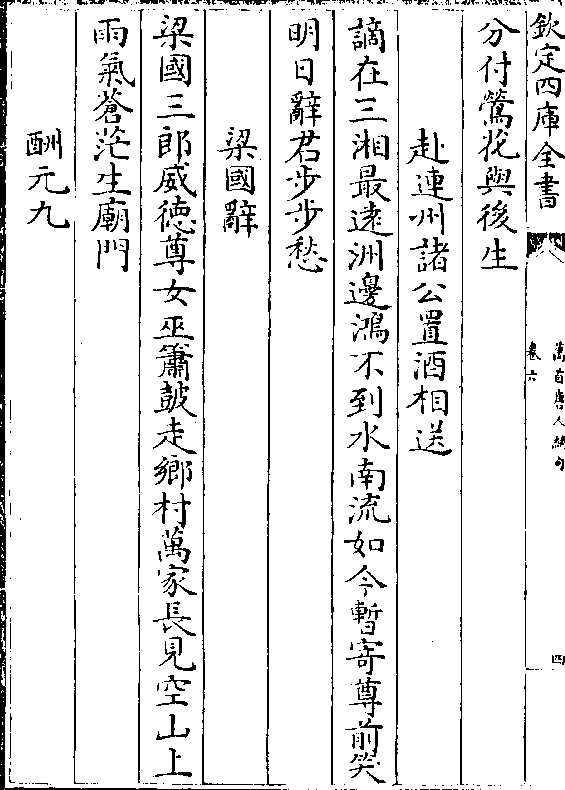 欽定四庫全書
萬首唐人絶句
卷六
四
分付鶯花與後生
赴連州諸公置酒相送
謫在三湘最逺洲邊鴻不到水南流如今暫寄尊前笑
明日辭君步步愁
梁國辭
梁國三郎威徳尊女巫簫鼓走鄉村萬家長見空山上
雨氣蒼茫生廟門
酬元九